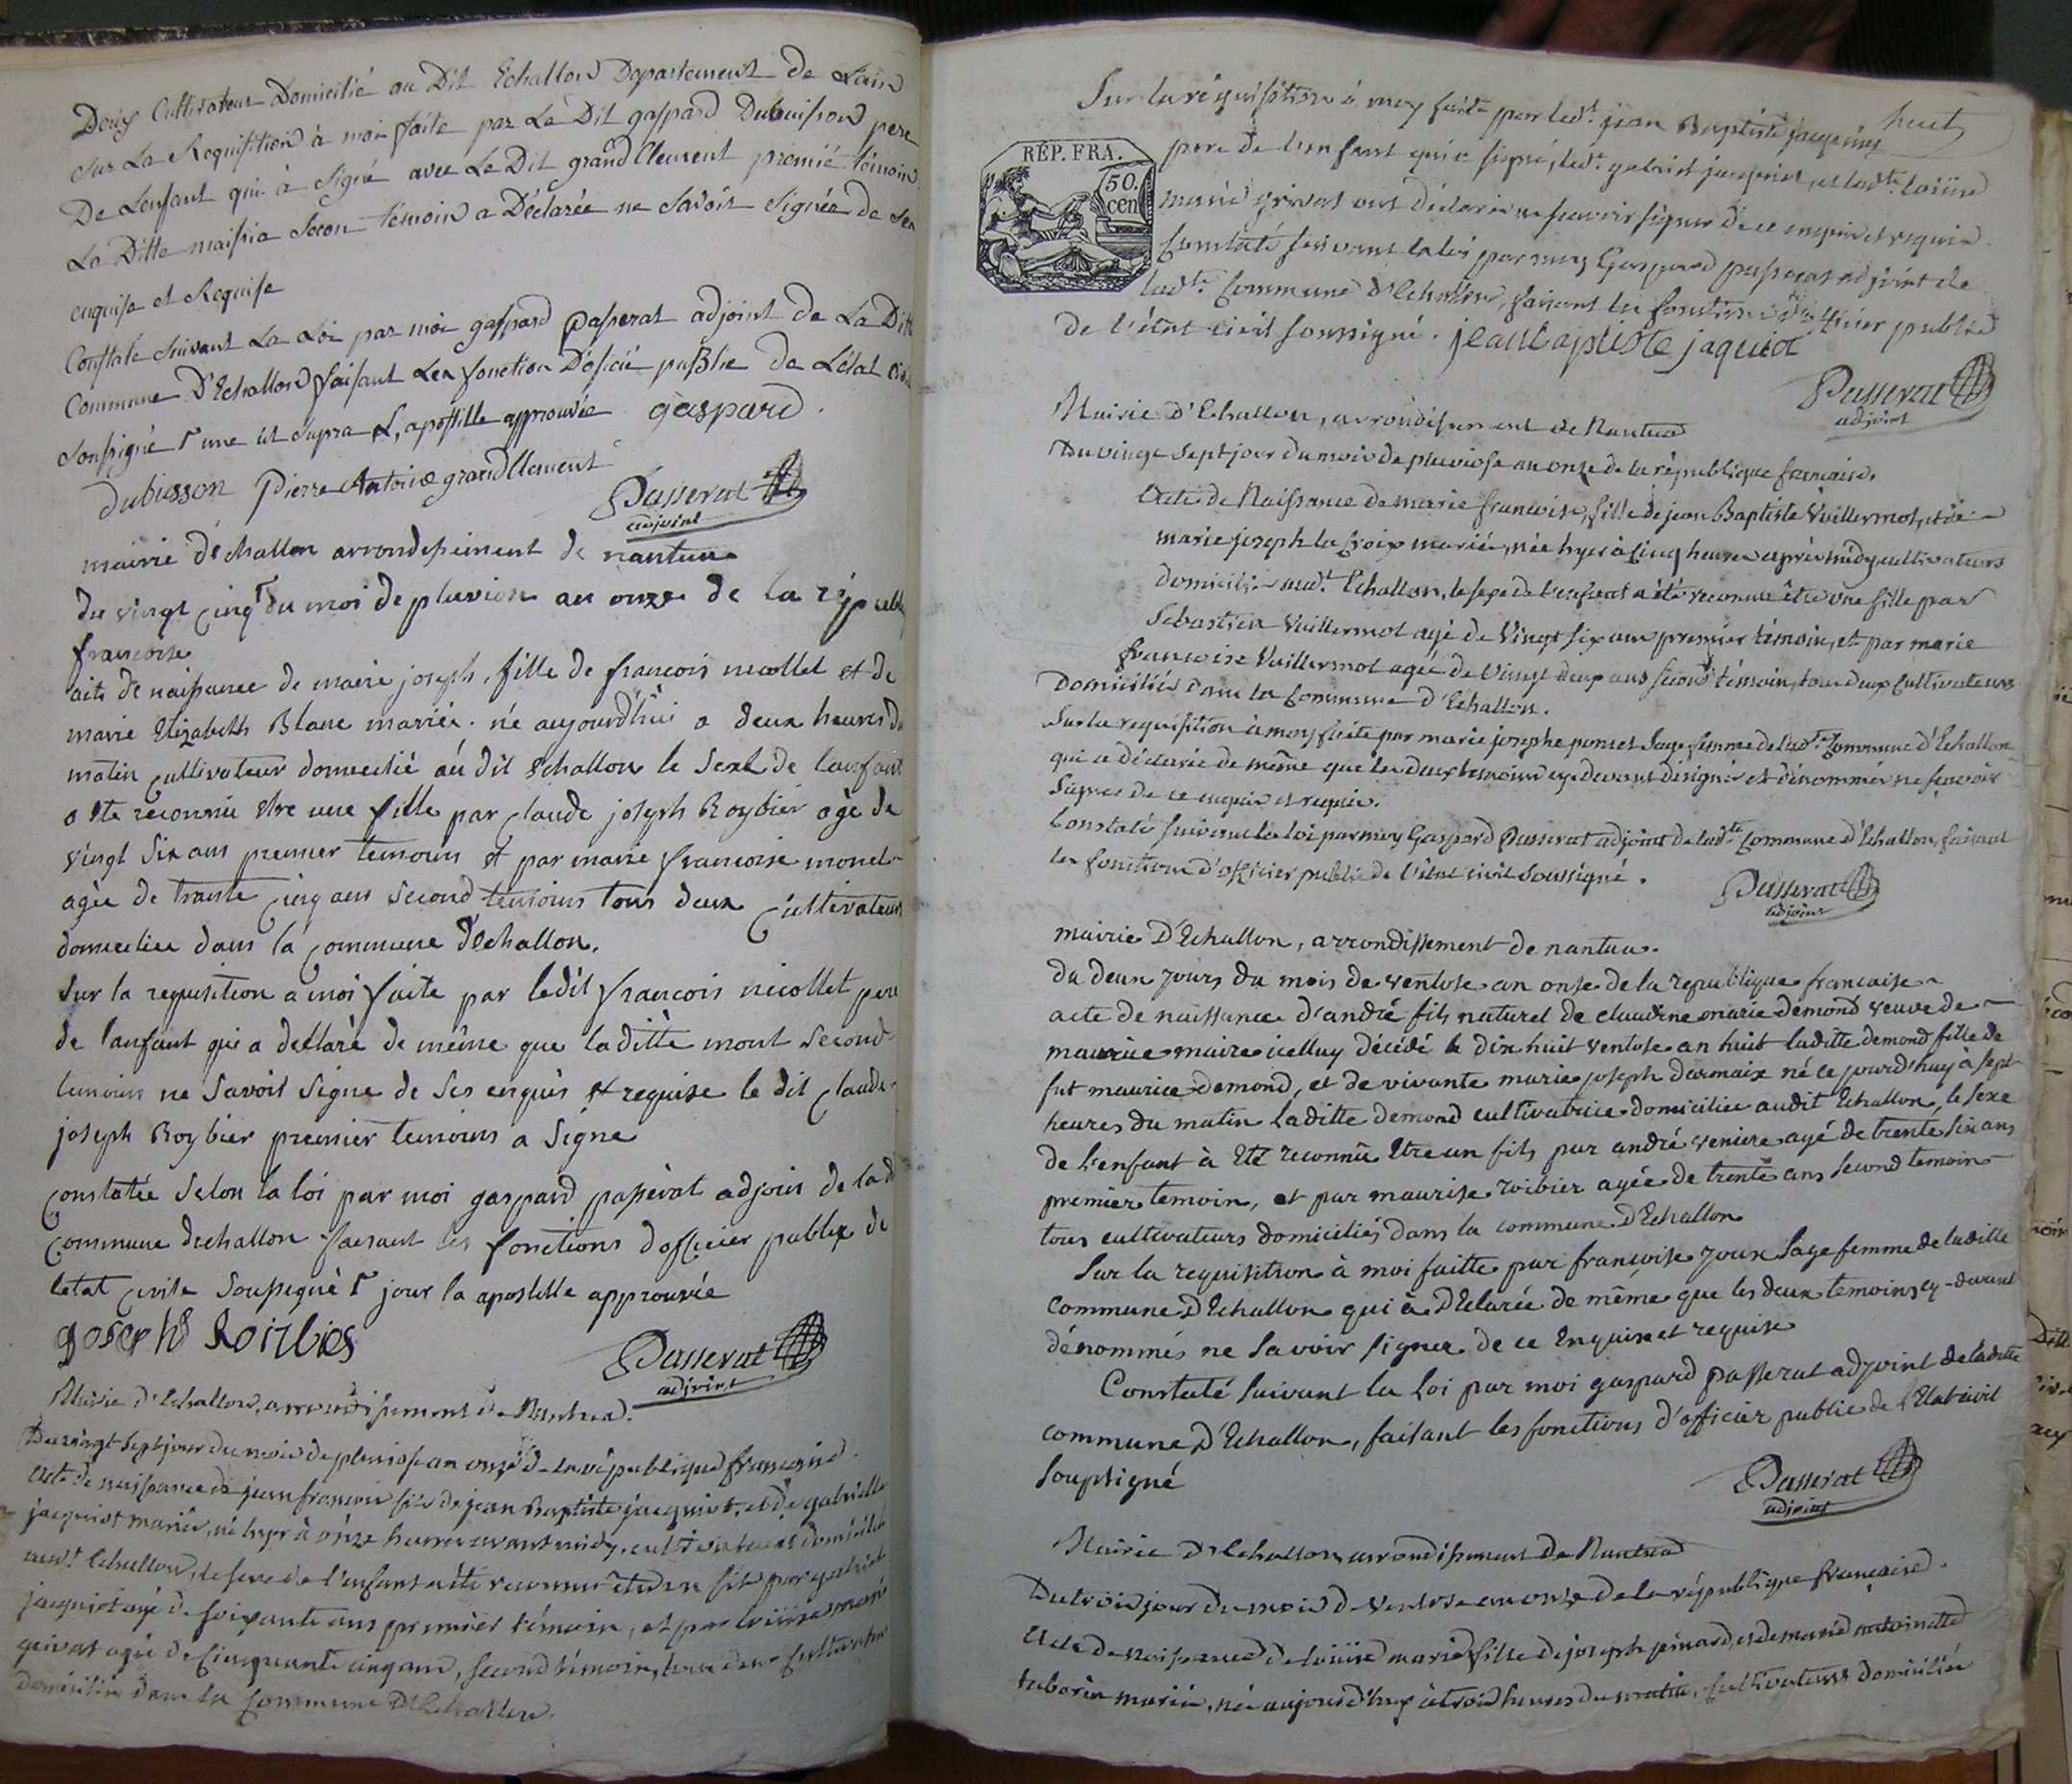 Deux Cultivateur Domicilié au Dit Echallon Departement de Lain
Sur La Requisition à moi faite par Le Dit gaspard Dubuisson pere
De Lenfant qui à Signé avec Le Dit grand Clement premié témoin
La Ditte maissia Secon témoin a Déclarée ne Savoir Signée de Ses
enquise et Requise
Constate Suivant La Loi par moi gaspard Passerat adjoint de La Ditte
Commune D'Echallon faisant Les fonction D'oficié publie de L'état Civil
Soussigné une ut Supra L'apostille approuvée gaspard.
dubiesson Pierre Antoine grandClement
Passerat
adjoint
mairie d'Echallon arrondissement de nantua
du vingt cinq du moi de pluviose an onze de la républi
francoise
acte de naissance de marie joseph, fille de francois nicollet et de
marie Elizabeth Blanc mariée. né aujourd'hui a deux heures du
matin cultivateur domicilié au dit Echallon le Sexe de lanfant
a été reconnu etre une fille par claude joseph Roybier agé de
vingt Six ans premier temoins et par marie francoise monet
agée de trante cinq ans Second temoins tous deux cultivateurs
domiciliée dans la commune d'Echallon.
Sur la requisition a moi faite par ledit francois nicollet pere
de lanfant qui a dellaré de même que laditte mont Second
temoins ne Savoir Signe de Ses enquis et requise le dit claude
joseph Roybier premier temoins a Signe
Constatée Selon la loi par moi gaspard passerat adjoin de lad
commune dechallon faisant les fonctions dofficier publix de
letat civile Soussigné jour la apostille approuvée
joseph Roizbies
Passerat
adjoint
Mairie d'Echallon, arrondissement de Nantua.
Du vingt Sept jour du mois de pluviose an onze de la république française.
Acte de naissance de jean françois fils de jean Baptiste jacquiot, et de gabrielle
jacquiot mariés, né hyer à onze heures avant midy, cultivateurs domiciliés
aud.t Echallon, le sexe de l'enfant a été reconnu être un fils par gabriel
jacquiot agé de soixante ans premier témoin, et par louise marie
grivat agée de Cinquante cinq ans, second témoin, tous deux cultivateurs
domiciliés dans la Commune d'Echallon.
Sur la réquisition à moy faite par led.t jean Baptiste jacquiot huit
RÉP. FRA.
50.
cen
pere de l'enfant qui a signé, led.t gabriel jacquiot, et lad.te louise
marie grivat ont déclaré ne savoir signer de ce enquis et requis.
Constaté Suivant la loi par moy Gaspard passerat adjoint de
lad.te Commune d'Echallon, faisant les fonctions d'officier public
de l'état civil soussigné. jean baptiste jaquiot
Passerat
adjoint
Mairie d'Echallon, arrondissement de Nantua
Du vingt Sept jour du mois de pluviose an onze de la république francaise.
Acte de Naissance de marie francoise, fille de jean Baptiste Vuillermot, et de
marie joseph la Croix mariés, née hyer à Cinq heures après midy cultivateurs
domiciliés aud.t Echallon, le sexe de l'enfant a été reconnu être une fille par
Sebastien Vuillermot agé de Vingt six ans premier témoin, et par marie
francoise Vuillermot agée de Vingt deux ans Second témoin, tous deux Cultivateurs
Domiciliés dans la Commune d'Echallon.
Sur la requisition à moy faite par marie josephe poncet Sage femme de lad.te Commune d'Echallon
qui a déclaré de même que les deux témoins cy devant désignés et dénommés ne savoir
Signer de ce enquis et requis.
Constaté suivant la loi par moy Gaspard Passerat adjoint de lad.te Commune d'Echallon, faisant
les fonctions d'officier public de l'état civil Soussigné.
Passerat
adjoint
mairie D'Echallon, arrondissement de nantua.
du deux jours du mois de ventose an onse de la republique francaise
acte de naissance d'andré fils naturel de claudine marie demond veuve de
maurice maire icelluy décédé le dix huit ventose an huit laditte demond fille de
fut maurice demond, et de vivante marie joseph darmaix né ce jourd'huy à sept
heures du matin Laditte demond cultivatrice domiciliée audit Echallon, le sexe
de l'enfant à Eté reconnû Etre un fils par andré veniere agé de trente Six ans
premier temoin, et par maurise roibier agée de trente ans second temoin
tous cultivateurs domiciliés dans la commune D'Echallon
Sur la requisition à moi faitte par françoise joux Sage femme de laditte
commune D'Echallon qui à D'Eclarée de même que les deux temoins cy-devant
dénommés ne Savoir signer de ce Enquise et requise
Constaté Suivant la Loi par moi gaspard passerat adjoint de laditte
commune D'Echallon, faisant les fonctions d'officier public de l'Etat civil
Soussigné
Passerat
adjoint
Mairie D'Echallon arrondissement de Nantua
Du trois jour du mois de Ventose an onze de la république française.
Acte de naissance de louise marie fille de joseph jinard, et de marie antoinette
taborin mariés, née aujourd'huy à trois heures du matin, Cultivateurs domiciliés